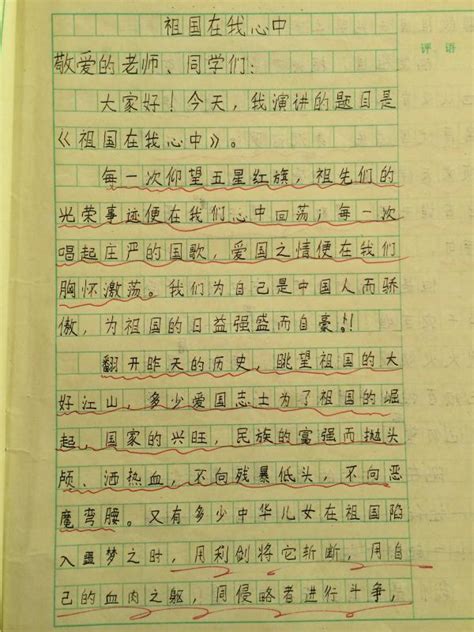 祖国在我心中
评语
敬爱的老师、同学们:
大家好!今天,我演讲的题目是
《祖国在我心中》。
每一次仰望五星红旗,祖先们的
光荣事迹便在我们心中回荡;每一次
唱起庄严的国歌,爱国之情便在我们
胸怀激荡。我们为自己是中国人而骄
傲,为祖国的日益强盛而自豪!
翻开昨天的历史,眺望祖国的大
好江山,多少爱国志士为了祖国的崛
起,国家的兴旺,民族的富强而抛头
颅、洒热血,不向残暴低头,不向恶
魔弯腰。又有多少中华儿女在祖国陷
入噩梦之时,用利剑将它斩断,用自
己的血肉之躯,同侵略者进行斗争,